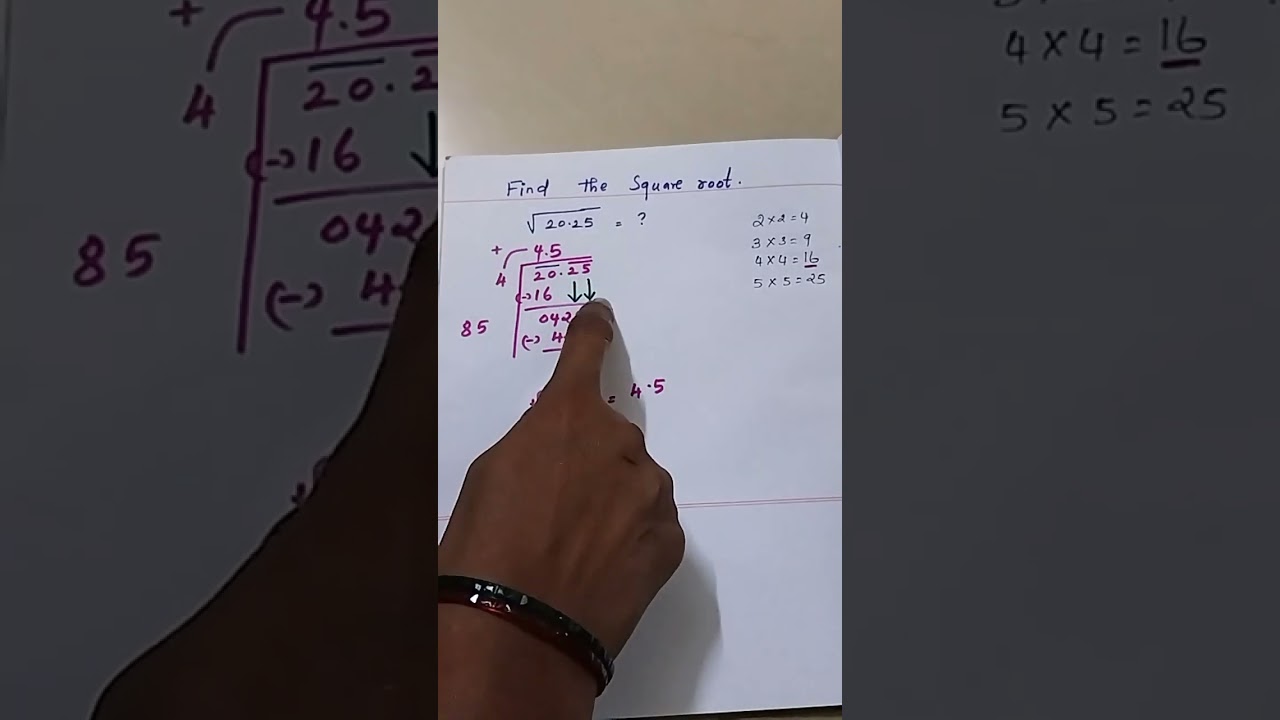 Find the Square root.
√20.25 = ?
+ 4.5
4 20.25
(-) 16 ↓↓
042
85 (-) 4
= 4.5
2 × 2 = 4
3 × 3 = 9
4 × 4 = 16
5 × 5 = 25